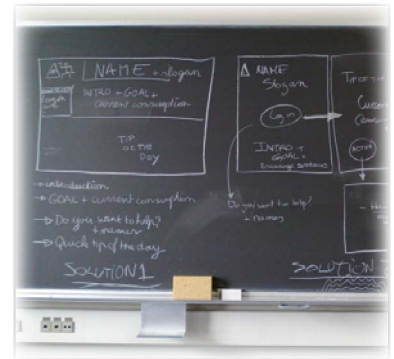 NAME + slogan
INTRO + GOAL +
current consumption
TIP
OF THE
DAY
→ introduction
→ GOAL + current consumption
→ Do you want to help?
+ names
→ Quick tip of the day
SOLUTION 1
NAME
Slogan
Log in
INTRO +
GOAL +
Do you want to help?
+ names
SOLUTION